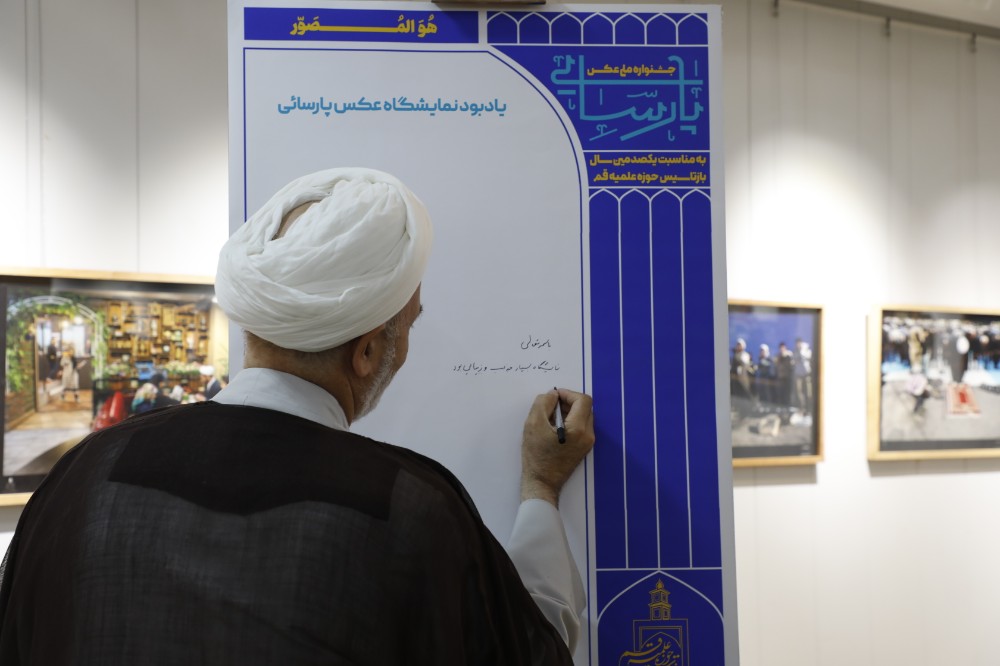 هُوَ المُـصَوِّر
جشنواره ملی عکس
پارسایی
به مناسبت یکصدمین سال
بازتاسیس حوزه علمیه قم
یادبود نمایشگاه عکس پارسائی
باسمه تعالی
نمایشگاه بسیار خوب و زیبایی بود